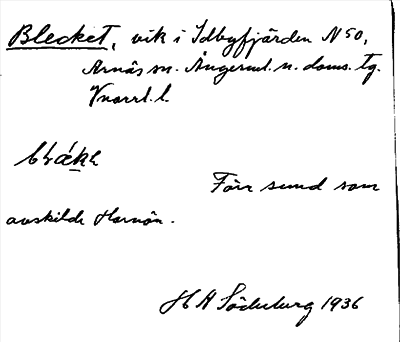 Blecket, vik i Idbyfjärden N 50,
Arnäs sn. Ångerml. n. doms. tg.
Vnorrl. l.
Förr sund som
avskilde Hornön.
H A Söderberg 1936